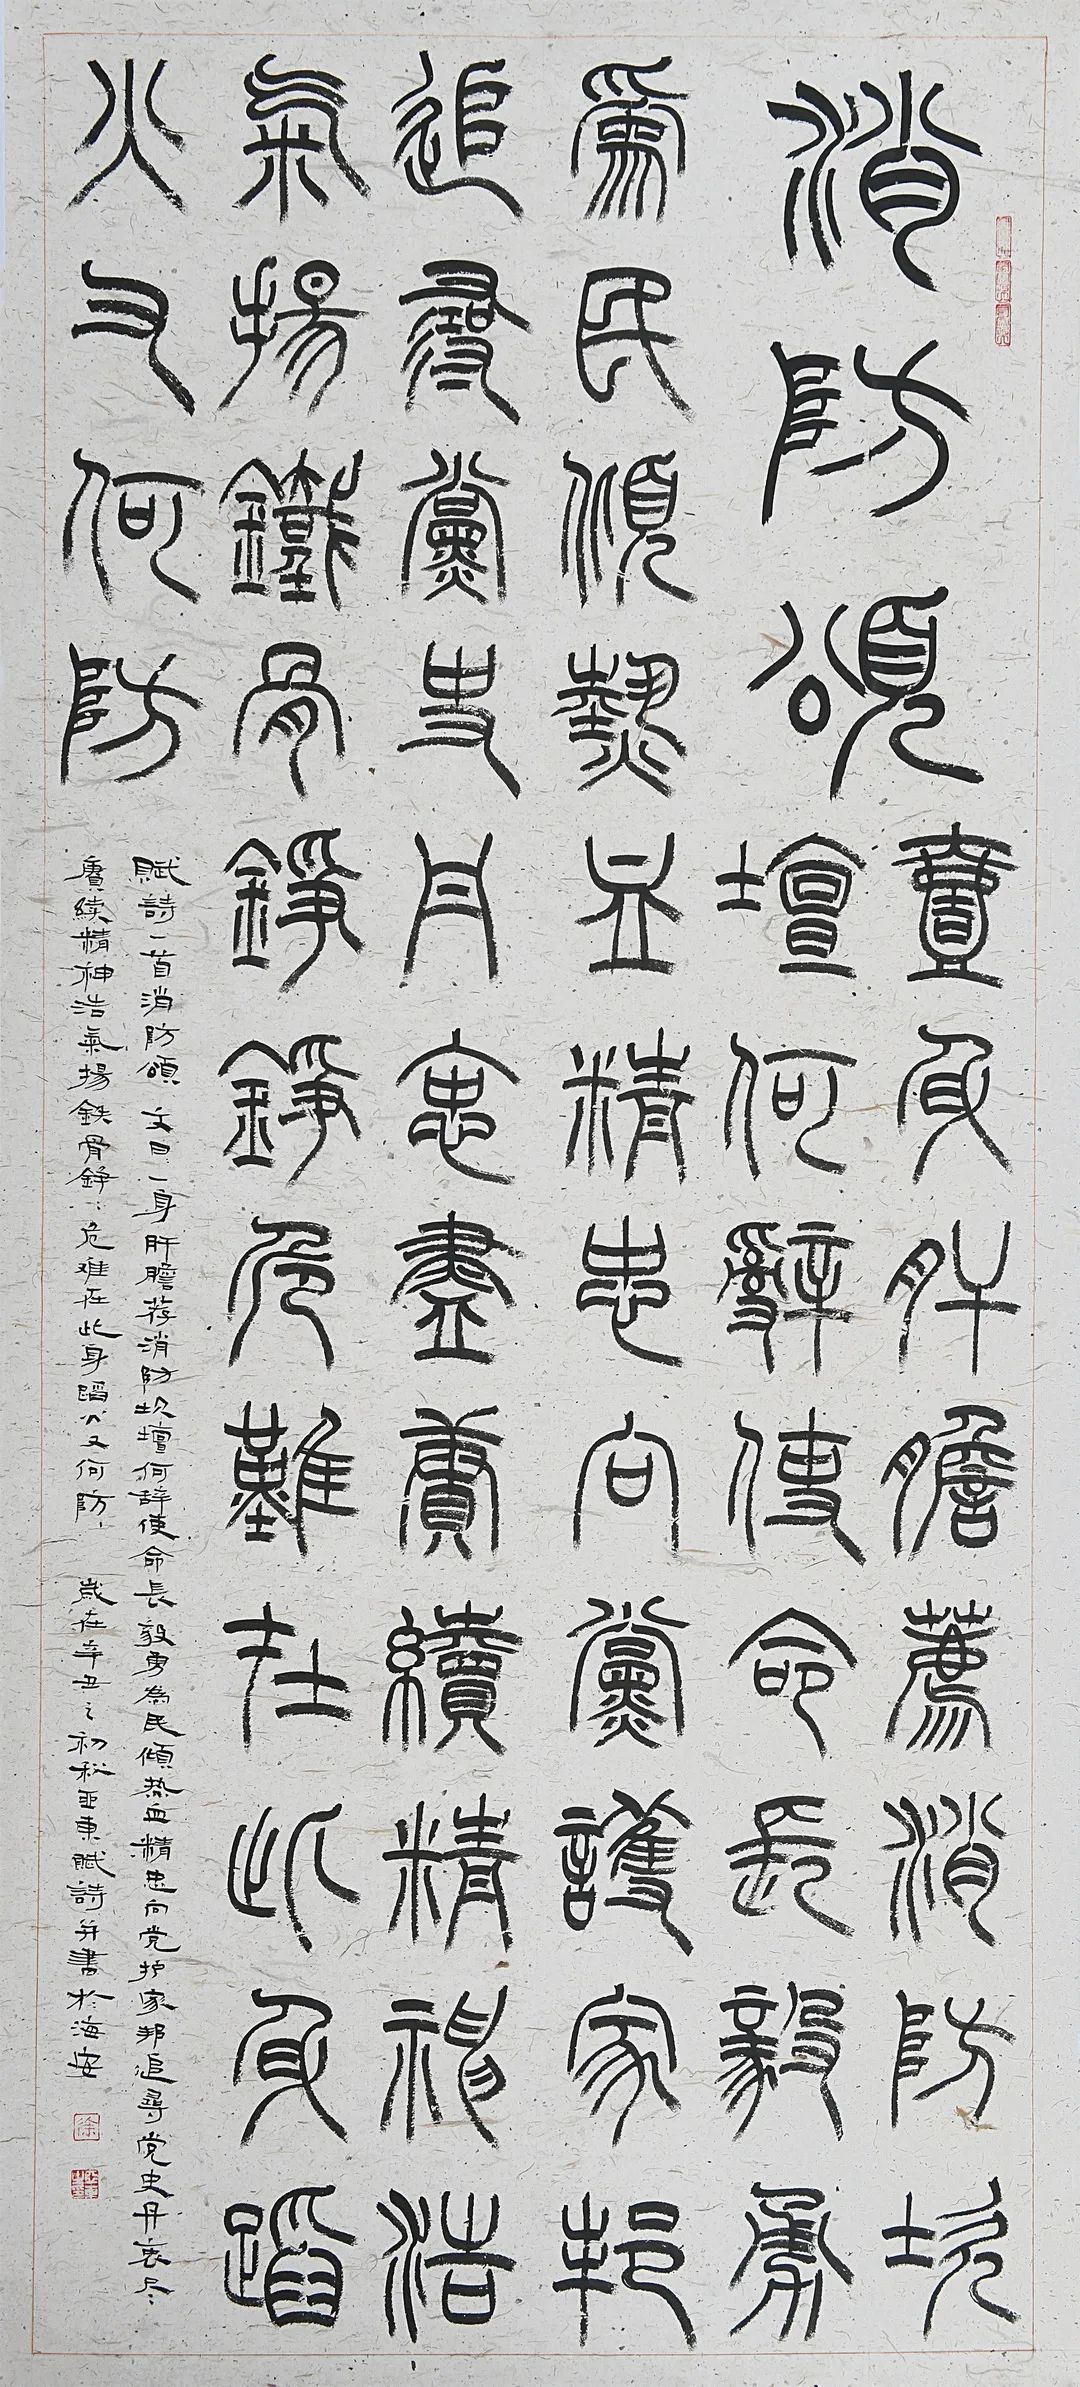 消防頌
壹身肝膽薦消防坎
壇何辭使命長毅勇
為民傾熱血精忠向黨護家邦
追尋黨史丹衷盡賡續精神浩
氣揚鐵骨錚錚危難在此身蹈
火又何防
賦詩一首消防頌文曰一身肝膽荐消防坎壇何辞使命長毅勇為民傾热血精忠向党护家邦追尋党史丹衷尽
賡续精神浩氣揚鉄骨錚〻危难在此身蹈火又何防 歲在辛丑之初秋亞東賦詩并書於海安
徐